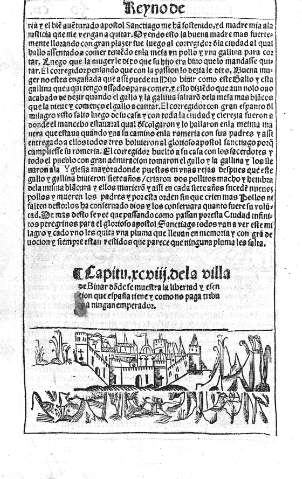 Reyno de
ria y el biē auēturado apostol Sanctiago me ha sostenido, y d̄ madre mia ala
justicia que me vengan a quitar. Oyendo esto la buena madre muy fuerte-
mente llorando con gran plazer fue luego al corregidor d̄la ciudad al qual
hallo assentado a comer teniēdo enla mesa vn pollo y vna gallina para cor
tar. Luego que la muger le dixo que su hijo era biuo que lo mandasse qui-
tar. El corregidor pensando que con la passion lo dezia le dixo. Buena mu-
ger no estes engañada que assi puede tu hijo biuir como este Gallo y esta
gallina que aqui tengo assados para comer, y esto diziēdo que aun no lo ouo
acabado de dezir quando el gallo y la gallina saltarō dela mesa mas blācos
que la nieue y començo el gallo a cantar. El corregidor con gran espanto dl̄
milagro visto salio luego de su casa y con toda la ciudad y clerezia fueron a
donde el mancebo estaua al qual descolgaron y lo hallaron enla mesma ma
nera que estaua quando yua su camino enla romeria con sus padres y assi
entregado a ellos todos tres boluieron al glorioso apostol sanctiago porq̄
cumpliesse su romeria. El corregidor boluio a su casa con los sacerdotes y
todo el pueblo con gran admiracion tomaron el gallo y la gallina y los lle
uaron ala Yglesia mayor adonde puestos en vnas rejas despues que este
gallo y gallina biuieron siete años criaron dos pollitos macho y hembra
dela misma blācura y ellos murierō y assi en cada siete años sucedē nueuos
pollos y mueren los padres y por esta orden sin que crien mas Pollos ni
falten destos los ha conseruado dios y los conseruara quanto fuere su volū
tad. De mas desto se vee que passando como passan por esta Ciudad infini-
tos peregrinos para el glorioso apostol Sanctiago todos van a ver este mi
lagro y cada vno les quita vna pluma que lleuen en memoria y con grā de
uocion y siempre estan vestidos que parece que ninguna pluma les falta.
Capitu. xcviij. dela villa
de Biuar dōde se muestra la libertad y esen
cion que españa tiene y como no paga tribu
a ningun emperador.